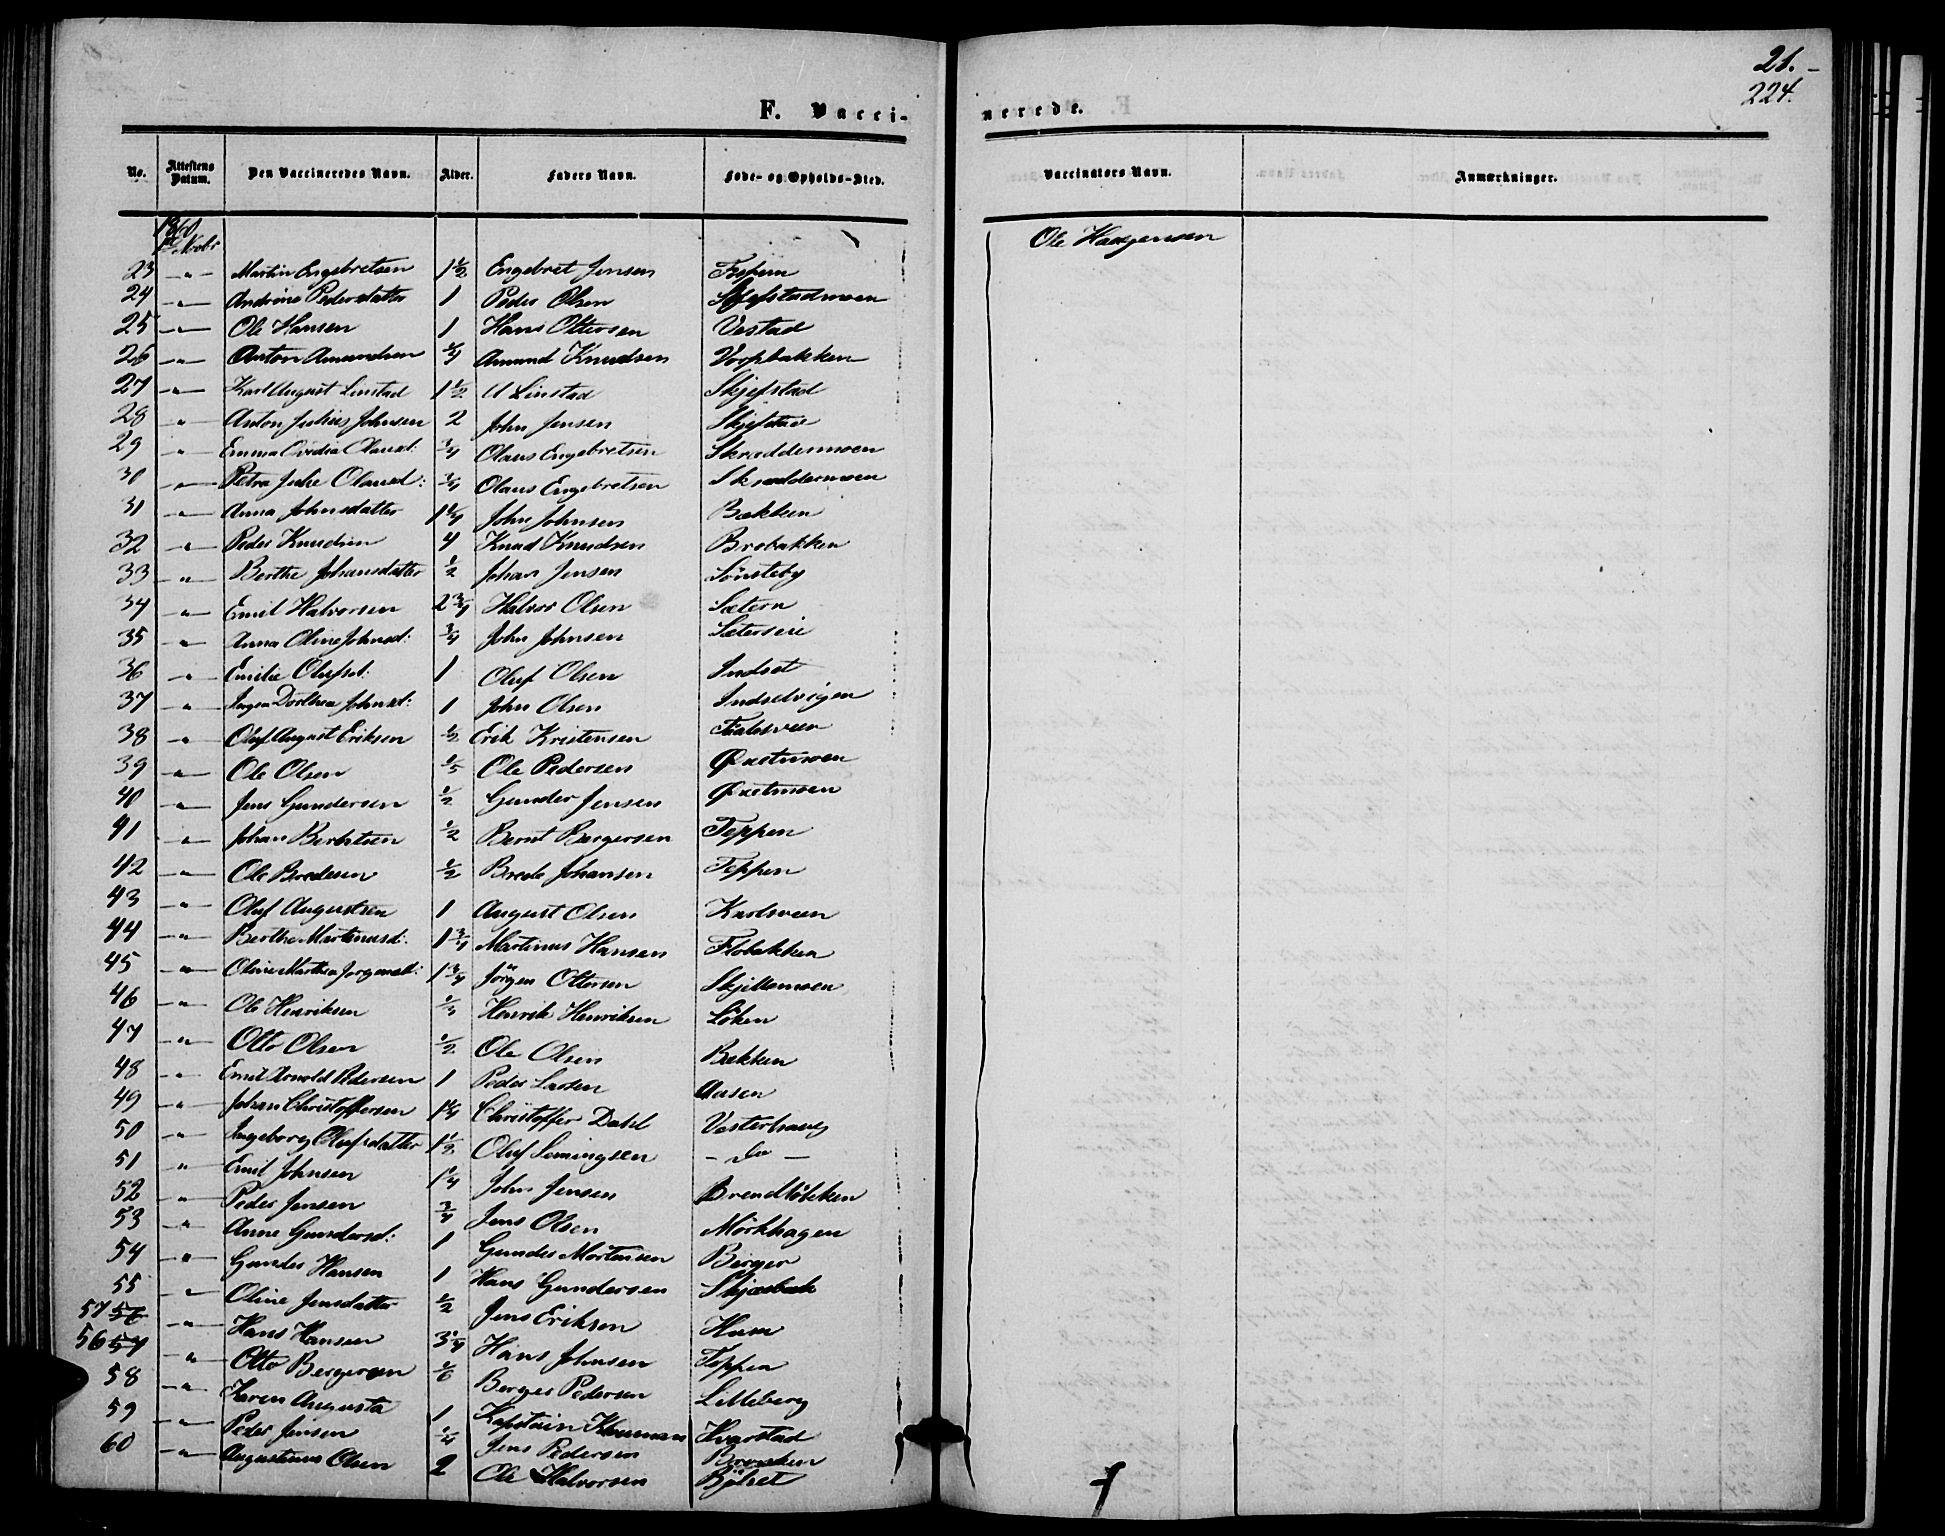 21.
224.
F. Vacci-
nerede.
No. Attestens Datum. Den Vaccineredes Navn. Alder. Faders Navn. Føde- og Opholds-Sted. Vaccinators Navn. Anmærkninger.
1860
Novbr Ole Haagensen
23 -"- Martin Engebretsen 1½ Engebret Jensen
24 -"- Andrine Pedersdatter 1 Peder Olsen Skjefstadmoen
25 -"- Ole Hansen 1 Hans Ottersen Vestad
26 -"- Anton Amundsen Amund Knudsen
27 -"- Karl August Linstad 1½ Linstad Skjefstad
28 " Anton Julius Johnsen 2 John Jensen
29 " Emma Olausd: ¾ Olaus Engebretsen Skræddermoen
30 -"- Petra Julie Olausd: ¾ Olaus Engebretsen Skræddermoen
31 -"- Anna Johnsdatter 1¼ John Johnsen Bækken
32 -"- Peder Knudsen 4 Knud Knudsen Brobakken
33 -"- Berthe Johansdatter ½ Johan Jensen Sönsteby
34 -"- Emil Halvorsen 2¾ Halvor Olsen Sætern
35 -"- Anna Oline Johnsd: ¾ John Johnsen
36 -"- Emilie Olufsd: 1 Oluf Olsen Indset
37 -"- Ingea Dorthea Johnsd: 1 John Olsen Indsetvigen
38 -"- Oluf August Eriksen ½ Erik Kristensen
39 -"- Ole Olsen ⅕ Ole Pedersen
40 -"- Jens Gundersen ½ Gunder Jensen
41 -"- Johan Berntsen ½ Bernt Bergersen Teppen
42 -"- Ole Bredesen ½ Brede Johansen Teppen
43 -"- Oluf Augustsen 1 August Olsen Karlsveen
44 -"- Berthe Martinusd: 1¾ Martinus Hansen Flobakken
45 -"- Oline Marthea Jørgensd: 1¾ Jörgen Ottersen
46 -"- Ole Henriksen Henrik Henriksen Löken
47 -"- Otto Olsen ½ Ole Olsen Bækken
48 -"- Emil Arnold Pedersen 1 Peder Larsen Aasen
49 -"- Johan Christoffersen 1¼ Christoffer Dahl Vesterhaug
50 " Ingeborg Olufsdatter 1½ Oluf Lemingsen - do -
51 " Emil Johnsen 1¼ John Jensen
52 -"- Peder Jensen ¾ Jens Olsen Mörkhagen
53 -"- Anne Gundersd: 1 Gunder Mortensen Berger
54 -"- Gunder Hansen 1 Hans Gundersen Skjæsbæk
55 -"- Oline Jensdatter ½ Jens Eriksen Hum
57 56 -"- Hans Hansen 3¼ Hans Johnsen Teppen
56 57 -"- Otto Bergersen Berger Pedersen Lilleberg
58 -"- Karen Augusta 1 Kaptain Hvarstad
59 -"- Peder Jensen ¼ Jens Pedersen
60 -"- Augustinus Olsen 2 Ole Halvorsen Bjölset